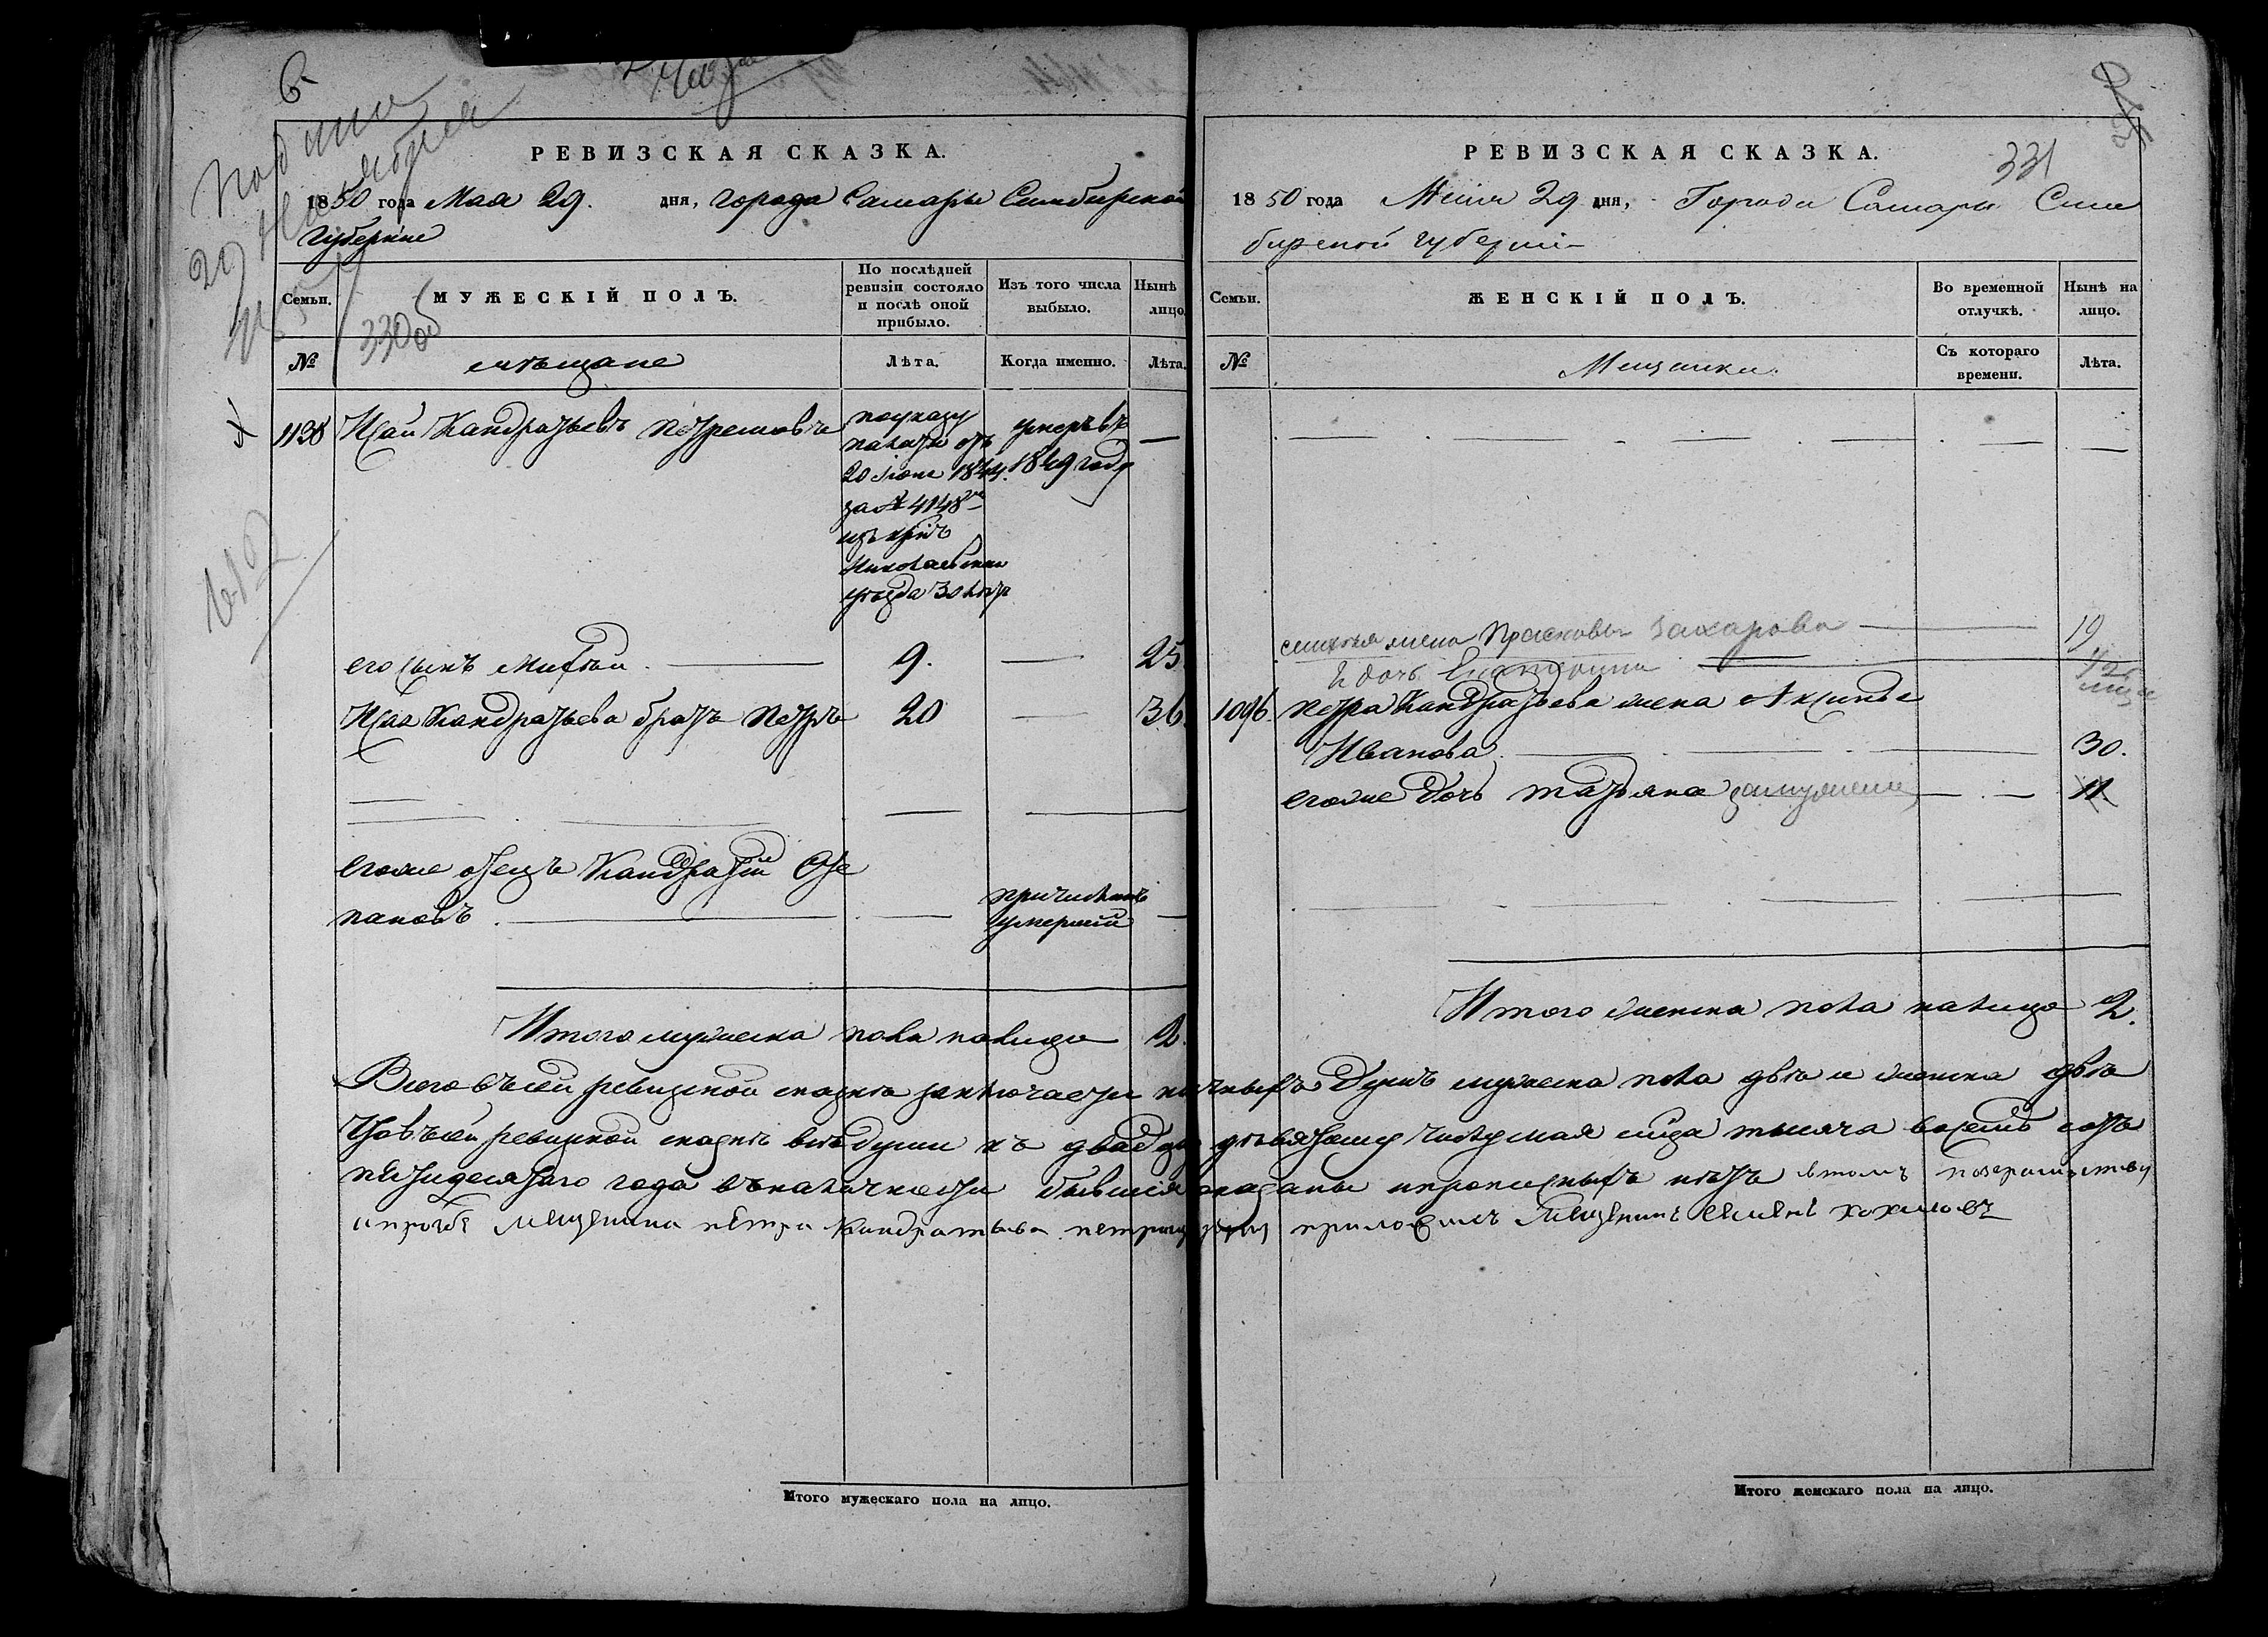 6
Подана
29 Ноября
330 об
РЕВИЗСКАЯ СКАЗКА.
1850 года Мая 29. дня, города Самары Симбирской
Губернiи
Семьи.
МУЖЕСКIЙ ПОЛЪ.
По послѣдней ревизiи состояло и послѣ оной прибыло.
Изъ того числа выбыло.
Нынѣ
лицо
№
мѣщане
Лѣта.
Когда именно.
Лѣта.
1138 Исай Кандратьевъ
по указу
палаты отъ
20 Iюня 1844.
за № 4148
Николаевскаго
уѣзда 30 лѣтъ
умеръ въ
1849 году
—
его сынъ 9. — 25
Исая Кандратьева братъ Петръ 20 — 36
его же отецъ Кандратiй Сте
пановъ
умершiй
Итого мужеска пола налицо 2.
РЕВИЗСКАЯ СКАЗКА.
331
1850 года Маия 29 дня, Города Самары Сим
бирской губернiи
Семьи.
ЖЕНСКIЙ ПОЛЪ.
Во временной отлучкѣ.
Нынѣ на лицо.
№
Мещанки.
Съ котораго времени.
Лѣта.
жена Прасковья Захарова 19
и дочь Екатерина
1096. Петра Кандратьева жена Аксинья
Иванова 30.
его же дочь Татьяна замужем 11.
Итого женска пола налицо 2.
Всего въ сей ревизской сказкѣ заключается наличныхъ душъ мужеска пола двѣ и женска двѣ
Что въ сей ревизской сказкѣ всѣ души къ двадцать девятому числу мая сего тысяча восемь сотъ
пятидесятаго года въ наличности бывшiя показаны и прописныхъ нѣтъ в томъ по безграмотству
и прозбе мещенина петра Кандратьева приложилъ Мещенинъ Семенъ хохловъ
Итого мужескаго пола на лицо.
Итого женскаго пола на лицо.